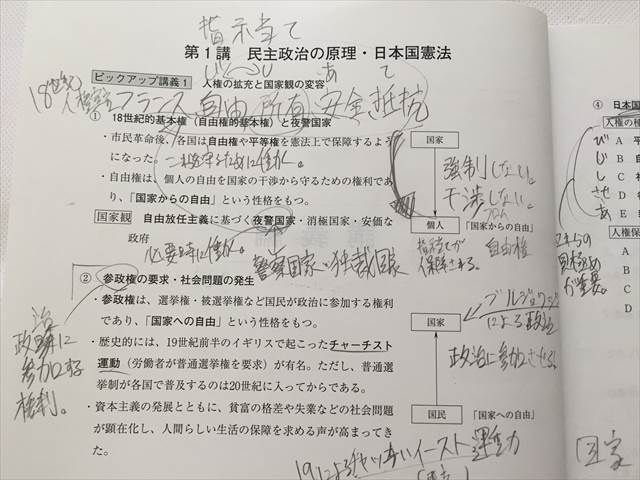 指示当て
第1講 民主政治の原理・日本国憲法
ピックアップ講義1 人権の拡充と国家観の変容
18世紀
人権宣言 フランス 自由 所有 安全 抵抗
① 18世紀的基本権（自由権的基本権）と夜警国家
・市民革命後、各国は自由権や平等権を憲法上で保障するよう
になった。
・自由権は、個人の自由を国家の干渉から守るための権利であ
り、「国家からの自由」という性格をもつ。
国家観 自由放任主義に基づく夜警国家・消極国家・安価な
政府 必要時に働く。
警察国家 独裁国家
国家
強制しない。
干渉しない。
個人 「国家からの自由」
自由権
② 参政権の要求・社会問題の発生
・参政権は、選挙権・被選挙権など国民が政治に参加する権利
であり、「国家への自由」という性格をもつ。
・歴史的には、19世紀前半のイギリスで起こったチャーチスト
運動（労働者が普通選挙権を要求）が有名。ただし、普通選
挙制が各国で普及するのは20世紀に入ってからである。
・資本主義の発展とともに、貧富の格差や失業などの社会問題
が顕在化し、人間らしい生活の保障を求める声が高まってき
た。
参加する
権利。
国家
ブルジョワジー
による政治
国民 「国家への自由」
運動
④ 日本国
人権の種
A
B
C
D
E
人権保
A
B
C
国家